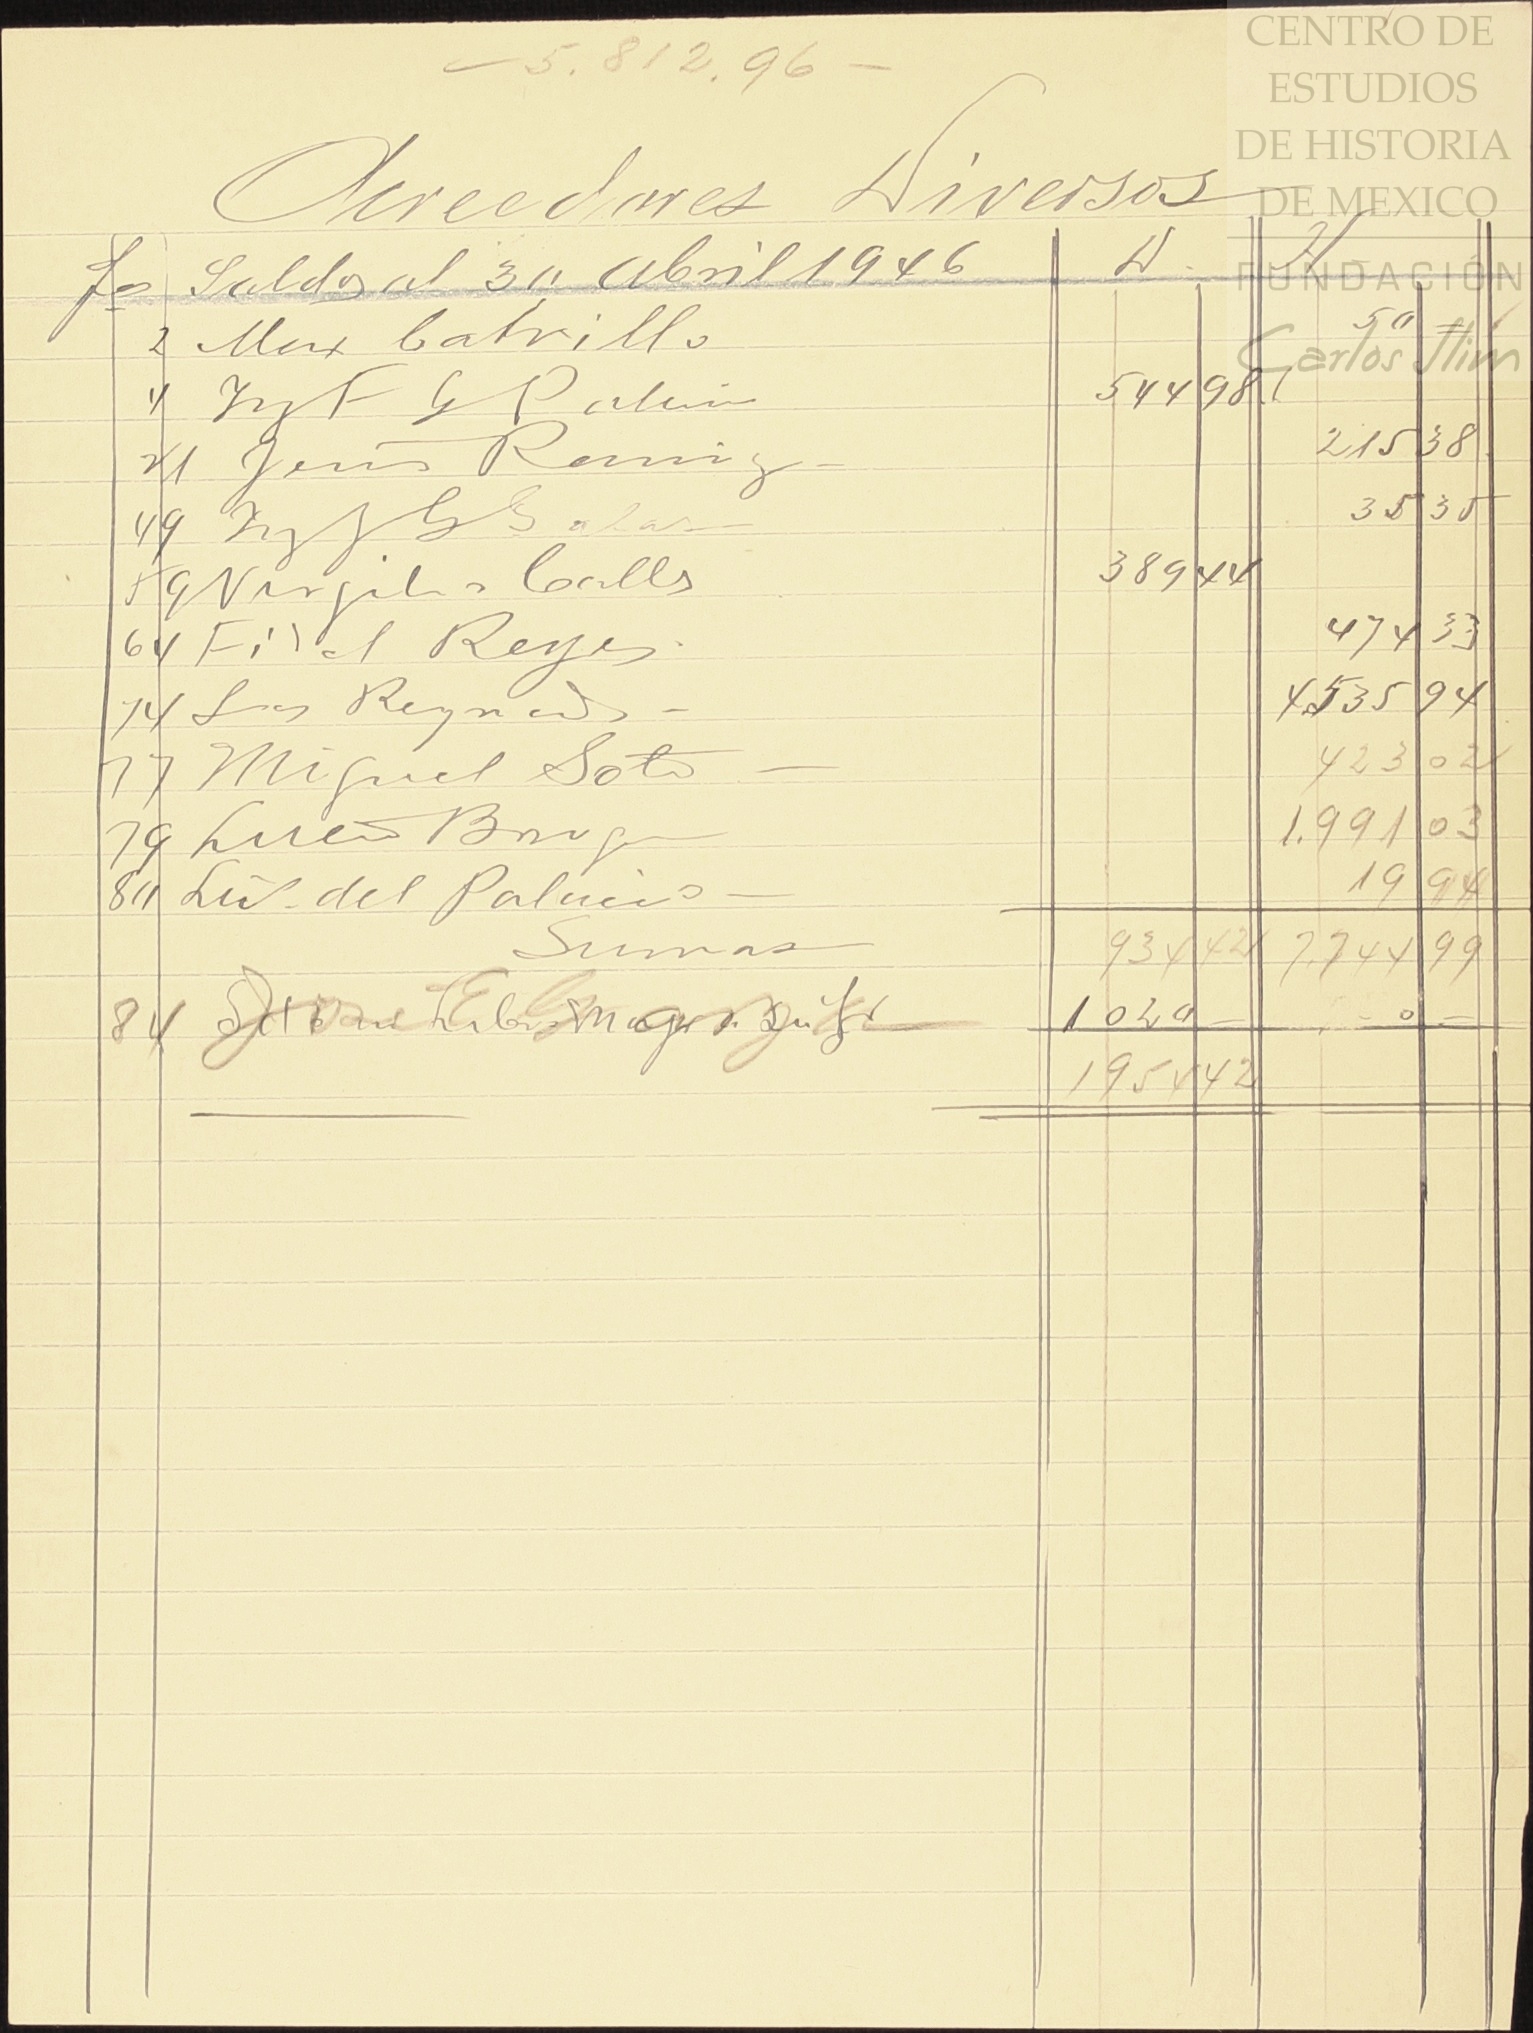 5.812.96
Acreedores Diversos
Fos Saldos al 30 Abril 1946 D. H
2 Max Catrillo 50 =
4 Ing F G Palacios 544 98
21 Jesús Ramirez 215 38
49 Ing J G Salas 35 35
59 Virgilio Calls 389 44
64 Fidel Reyes 474 33
74 Reynaldo 4.535 94
77 Miguel Soto 423 02
79 1.991 03
80 Luis del Palacio 19 94
Sumas 934 42 7.744 99
84 1 020 - - 0 -
1954 42
CENTRO DE
ESTUDIOS
DE HISTORIA
DE MEXICO
FUNDACIÓN
Carlos Slim